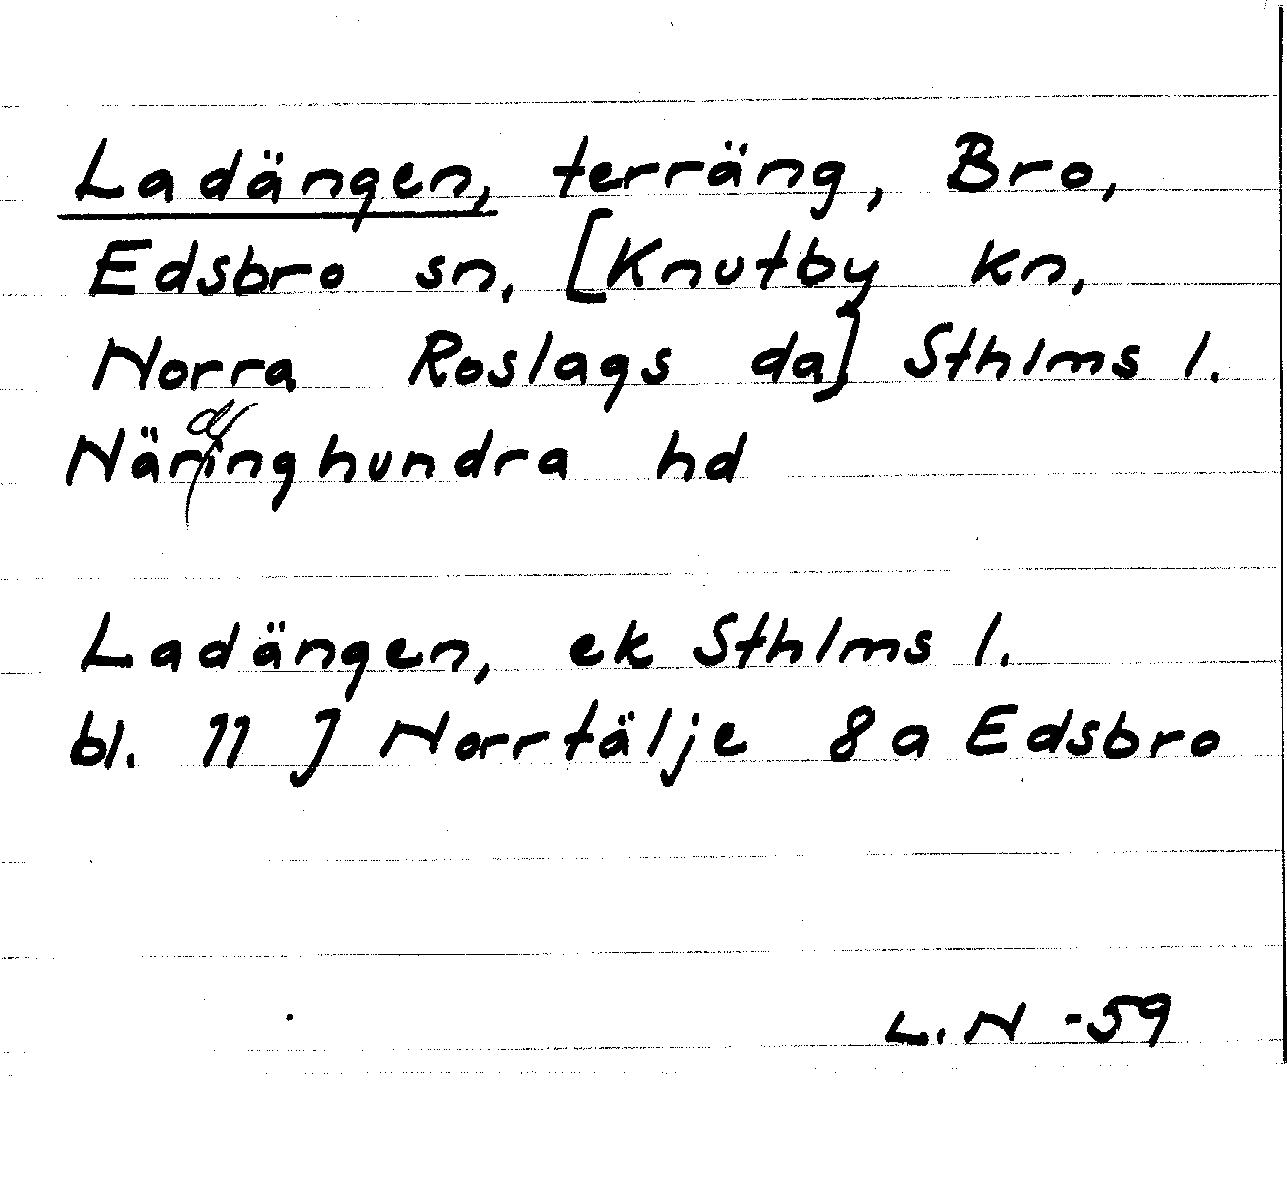 Ladängen, terräng, Bro,
Edsbro sn, [Knutby kn,
Norra Roslags da] Sthlms l.
Näringhundra hd
Ladängen, ek Sthlms l.
bl. 11 J Norrtälje 8a Edsbro
L.N -59